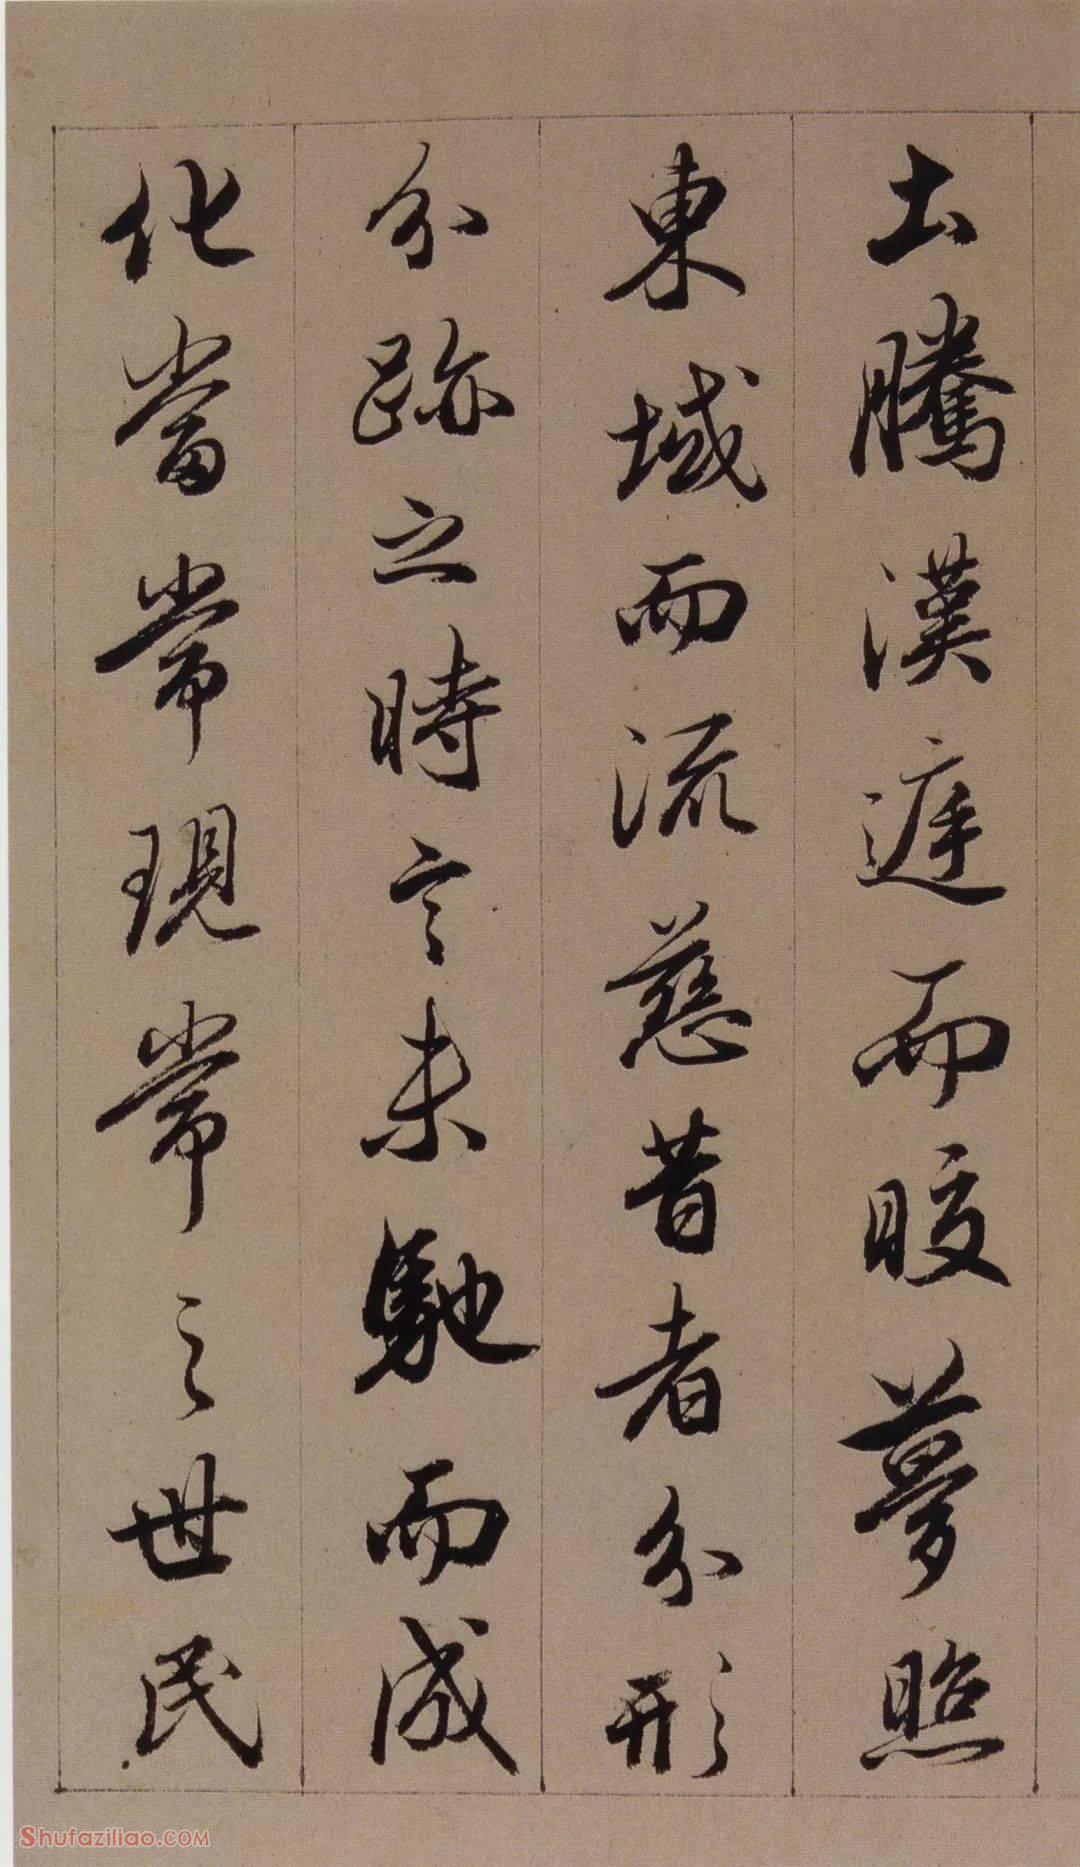 土騰漢遲而皎夢照
東域而流慈昔者分形
分跡之時言未馳而成
化當常現常之世民
Shufaziliao.COM